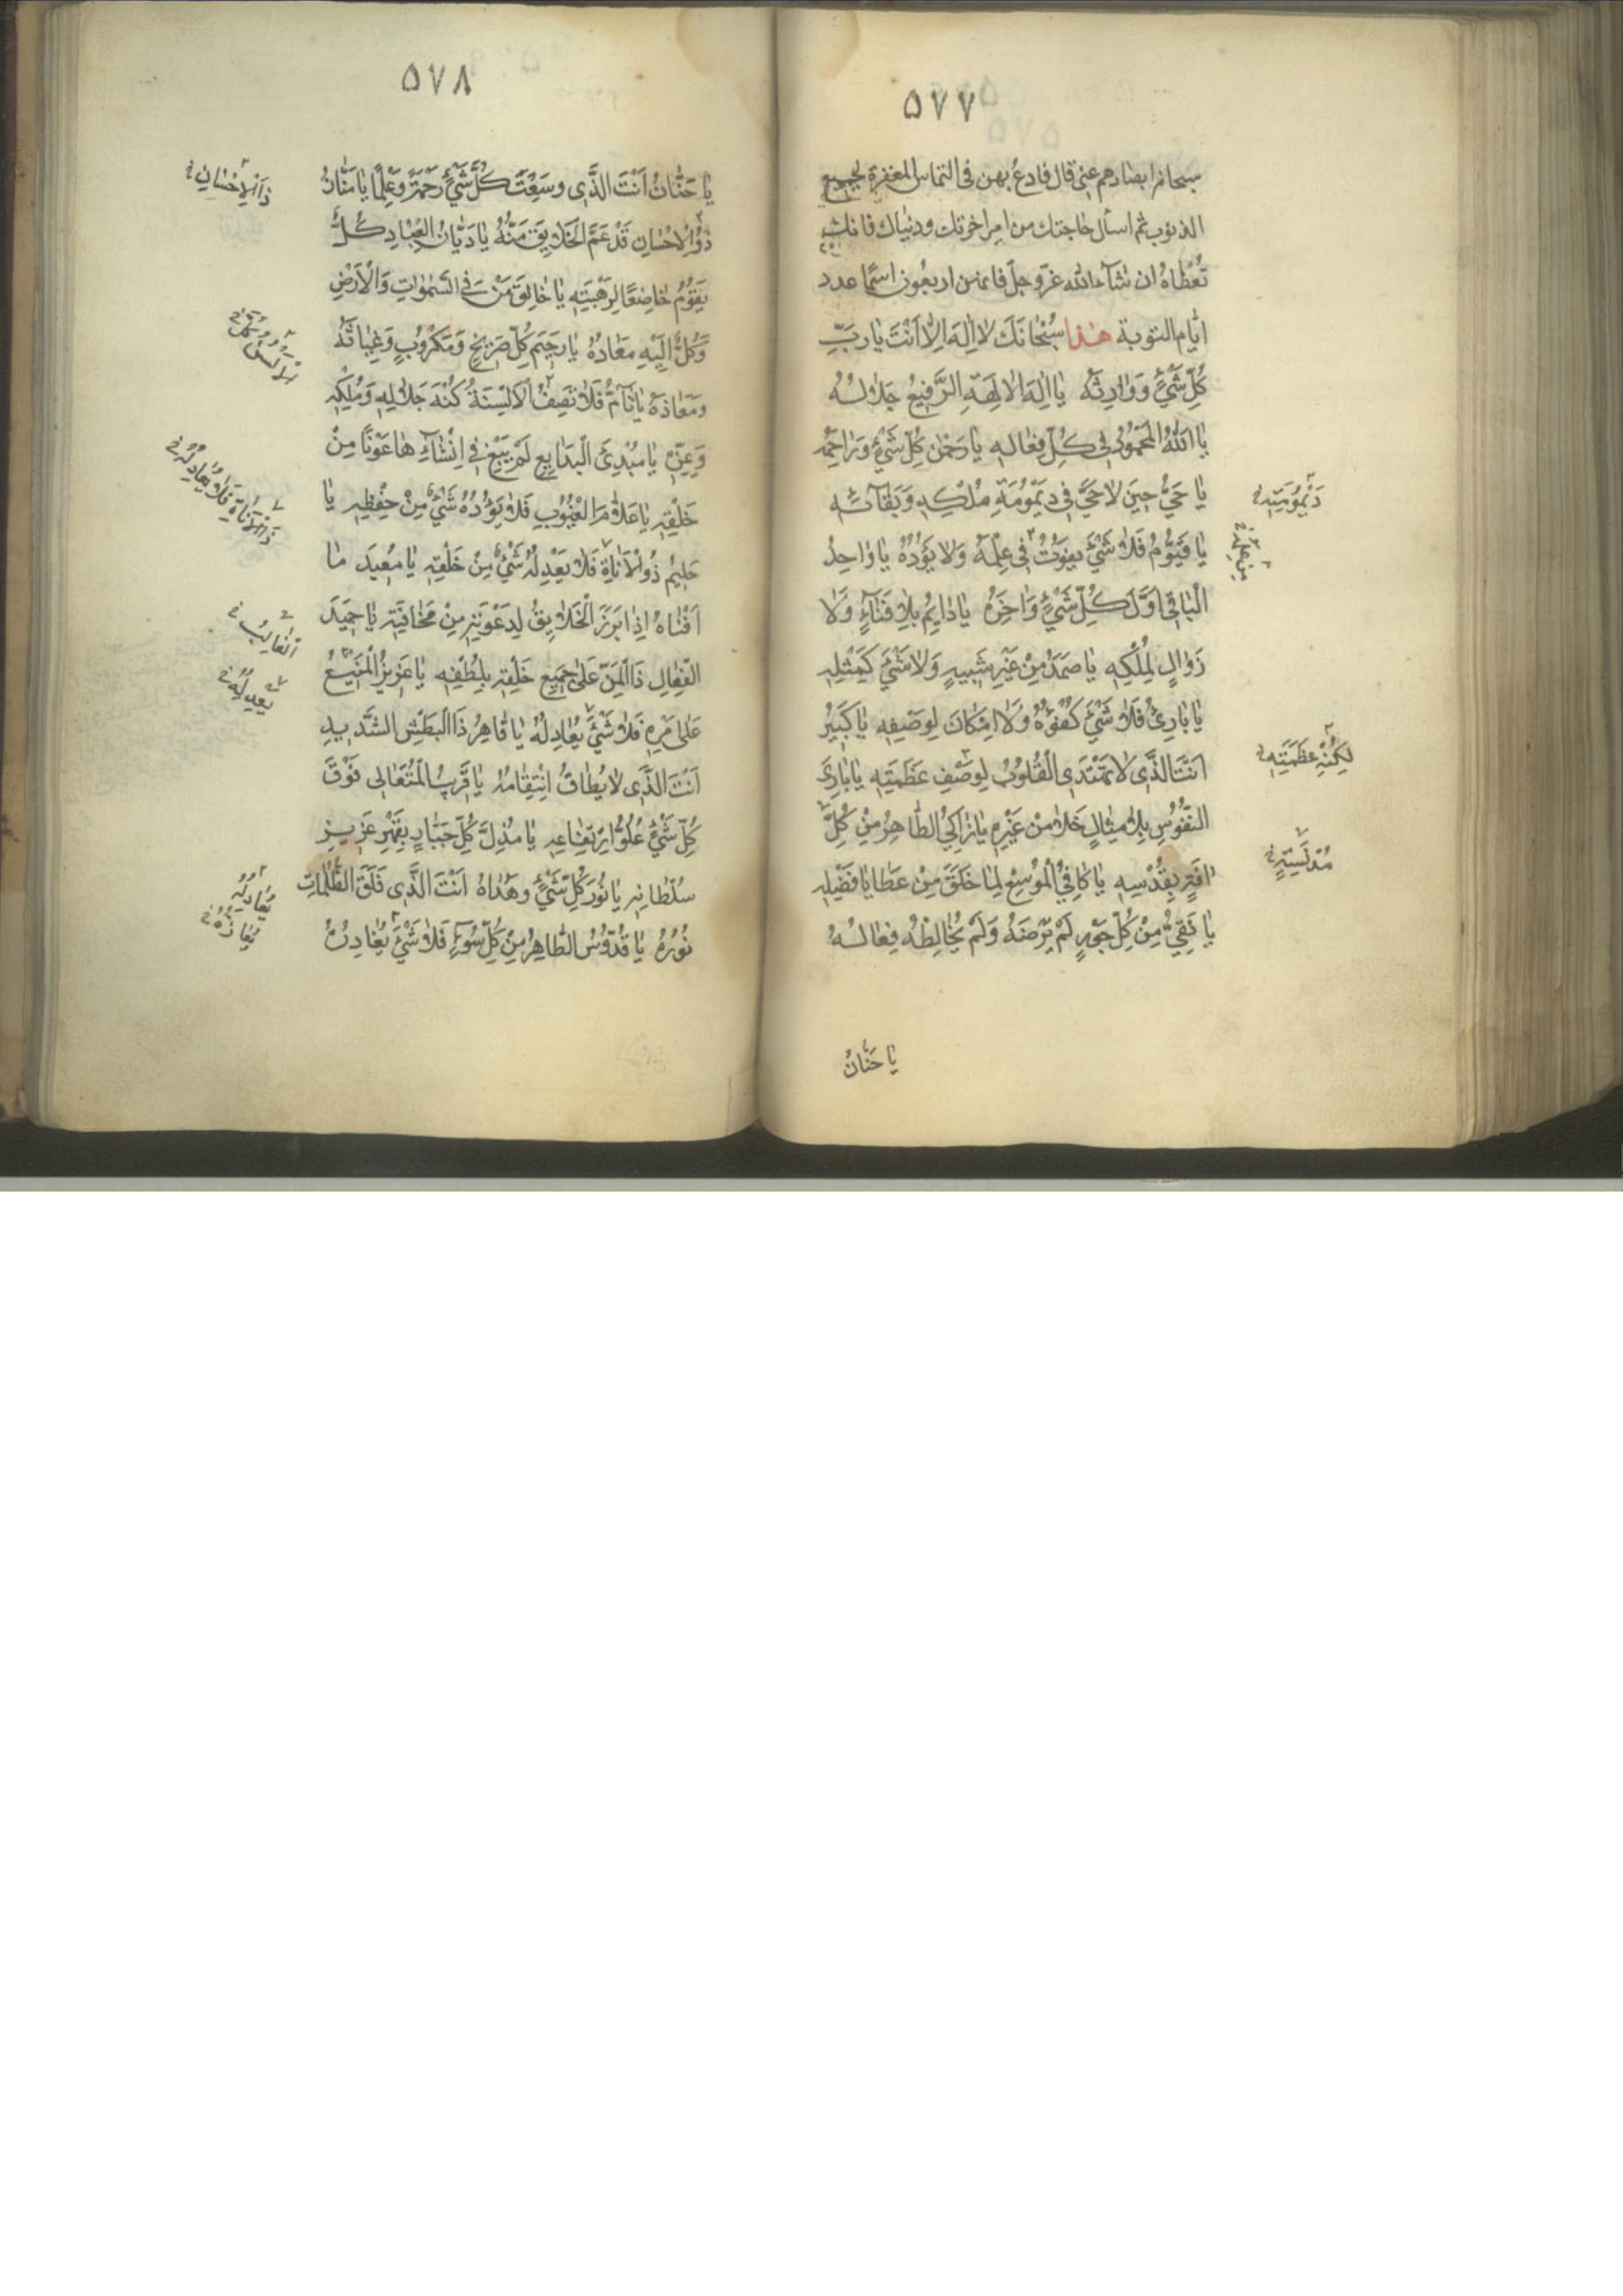 ۵۷۷
سبحانه ابصارهم عنی قال فادع بهن فی التماس المغفرة لجمیع
الذنوب ثم اسأل حاجتك من امر اخرتك ودنیاك فانك
تُعْطاهُ ان شآء الله عزّ وجلّ فانهن اربعون اسمًا عدد
ایّام التوبة هذا سُبْحٰانَكَ لاٰ اِلٰهَ اِلاّٰ اَنْتَ یٰا ربَّ
كُلِّ شَیْءٍ وَوٰارِثَهُ یٰا اِلٰهَ الاٰلِهَةِ الرَّفِیعُ جَلاٰلُهُ
یٰا اَللهُ الْمَحْمُودُ فِی كُلِّ فِعٰالِهِ یٰا رَحْمٰنَ كُلِّ شَیْءٍ وَرٰاحِمَهُ
یٰا حَیُّ حِینَ لاٰ حَیَّ فِی دَیْمُومَةِ مُلْكِهِ وَبَقٰآئِهِ
دَیْمُومِیَّةِ
یٰا قَیُّومُ فَلاٰ شَیْءَ یَفُوتُ فِی عِلْمِهِ وَلاٰ یَؤُدُهُ یٰا وٰاحِدُ
الْبٰاقِی اَوَّلَ كُلِّ شَیْءٍ وَاٰخِرَهُ یٰا دٰائِمُ بِلاٰ فَنٰآءٍ وَلاٰ
زَوٰالٍ لِمُلْكِهِ یٰا صَمَدُ مِنْ غَیْرِ شَبِیهٍ وَلاٰ شَیْءَ كَمِثْلِهِ
یٰا بٰارِئُ فَلاٰ شَیْءَ كُفْوُهُ وَلاٰ اِمْكٰانَ لِوَصْفِهِ یٰا كَبِیرُ
اَنْتَ الَّذِی لاٰ تَهْتَدِی الْقُلُوبُ لِوَصْفِ عَظَمَتِهِ یٰا بٰارِئَ
لِكُنْهِ عَظَمَتِهِ
النُّفُوسِ بِلاٰ مِثٰالٍ خَلاٰ مِنْ غَیْرِهِ یٰا زٰاكِی الطّٰاهِرُ مِنْ كُلِّ
اٰفَةٍ بِقُدْسِهِ یٰا كٰافِی الْمُوسِعُ لِمٰا خَلَقَ مِنْ عَطٰایٰا فَضْلِهِ
یٰا نَقِیُّ مِنْ كُلِّ جَوْرٍ لَمْ یَرْضَهُ وَلَمْ یُخٰالِطْهُ فِعٰالُهُ
یٰا حَنّٰانُ
۵۷۸
یٰا حَنّٰانُ اَنْتَ الَّذِی وَسِعْتَ كُلَّ شَیْءٍ رَحْمَةً وَعِلْمًا یٰا مَنّٰانُ
ذَا الْاِحْسٰانِ
ذُو الْاِحْسٰانِ قَدْ عَمَّ الْخَلاٰیِقَ مَنُّهُ یٰا دَیّٰانَ الْعِبٰادِ كُلٌّ
یَقُومُ خٰاضِعًا لِرَهْبَتِهِ یٰا خٰالِقَ مَنْ فِی السَّمٰوٰاتِ وَالْاَرْضِ
وَكُلٌّ اِلَیْهِ مَعٰادُهُ یٰا رَحِیمَ كُلِّ صَرِیخٍ وَمَكْرُوبٍ وَغِیٰاثَهُ
وَمَعٰاذَهُ یٰا تٰآمُّ فَلاٰ تَصِفُ الْاَلْسِنَةُ كُنْهَ جَلاٰلِهِ وَمُلْكِهِ
وَعِزِّهِ یٰا مُبْدِئَ الْبَدٰایِعِ لَمْ یَبْغِ فِی اِنْشٰآئِهٰا عَوْنًا مِنْ
خَلْقِهِ یٰا عَلاّٰمَ الْغُیُوبِ فَلاٰ یَؤُدُهُ شَیْءٌ مِنْ حِفْظِهِ یٰا
ذَا الْاَنٰاةِ فَلاٰ یُعٰادِلُهُ
حَلِیمُ ذُو الْاَنٰاةِ فَلاٰ یَعْدِلُهُ شَیْءٌ مِنْ خَلْقِهِ یٰا مُعِیدَ مٰا
اَفْنٰاهُ اِذٰا بَرَزَ الْخَلاٰیِقُ لِدَعْوَتِهِ مِنْ مَخٰافَتِهِ یٰا حَمِیدَ
الْفِعٰالِ ذَا الْمَنِّ عَلیٰ جَمِیعِ خَلْقِهِ بِلُطْفِهِ یٰا عَزِیزُ الْمَنِیعُ
الْغٰالِبُ
عَلیٰ اَمْرِهِ فَلاٰ شَیْءَ یُعٰادِلُهُ یٰا قٰاهِرُ ذَا الْبَطْشِ الشَّدِیدِ
یَعْدِلُهُ
اَنْتَ الَّذِی لاٰ یُطٰاقُ انْتِقٰامُهُ یٰا قَرِیبُ الْمُتَعٰالِی فَوْقَ
كُلِّ شَیْءٍ عُلُوُّ ارْتِفٰاعِهِ یٰا مُذِلَّ كُلِّ جَبّٰارٍ بِقَهْرِ عَزِیزِ
سُلْطٰانِهِ یٰا نُورَ كُلِّ شَیْءٍ وَهُدٰاهُ اَنْتَ الَّذِی فَلَقَ الظُّلُمٰاتِ
نُورُهُ یٰا قُدُّوسُ الطّٰاهِرُ مِنْ كُلِّ سُوٓءٍ فَلاٰ شَیْءَ یُعٰادِلُهُ